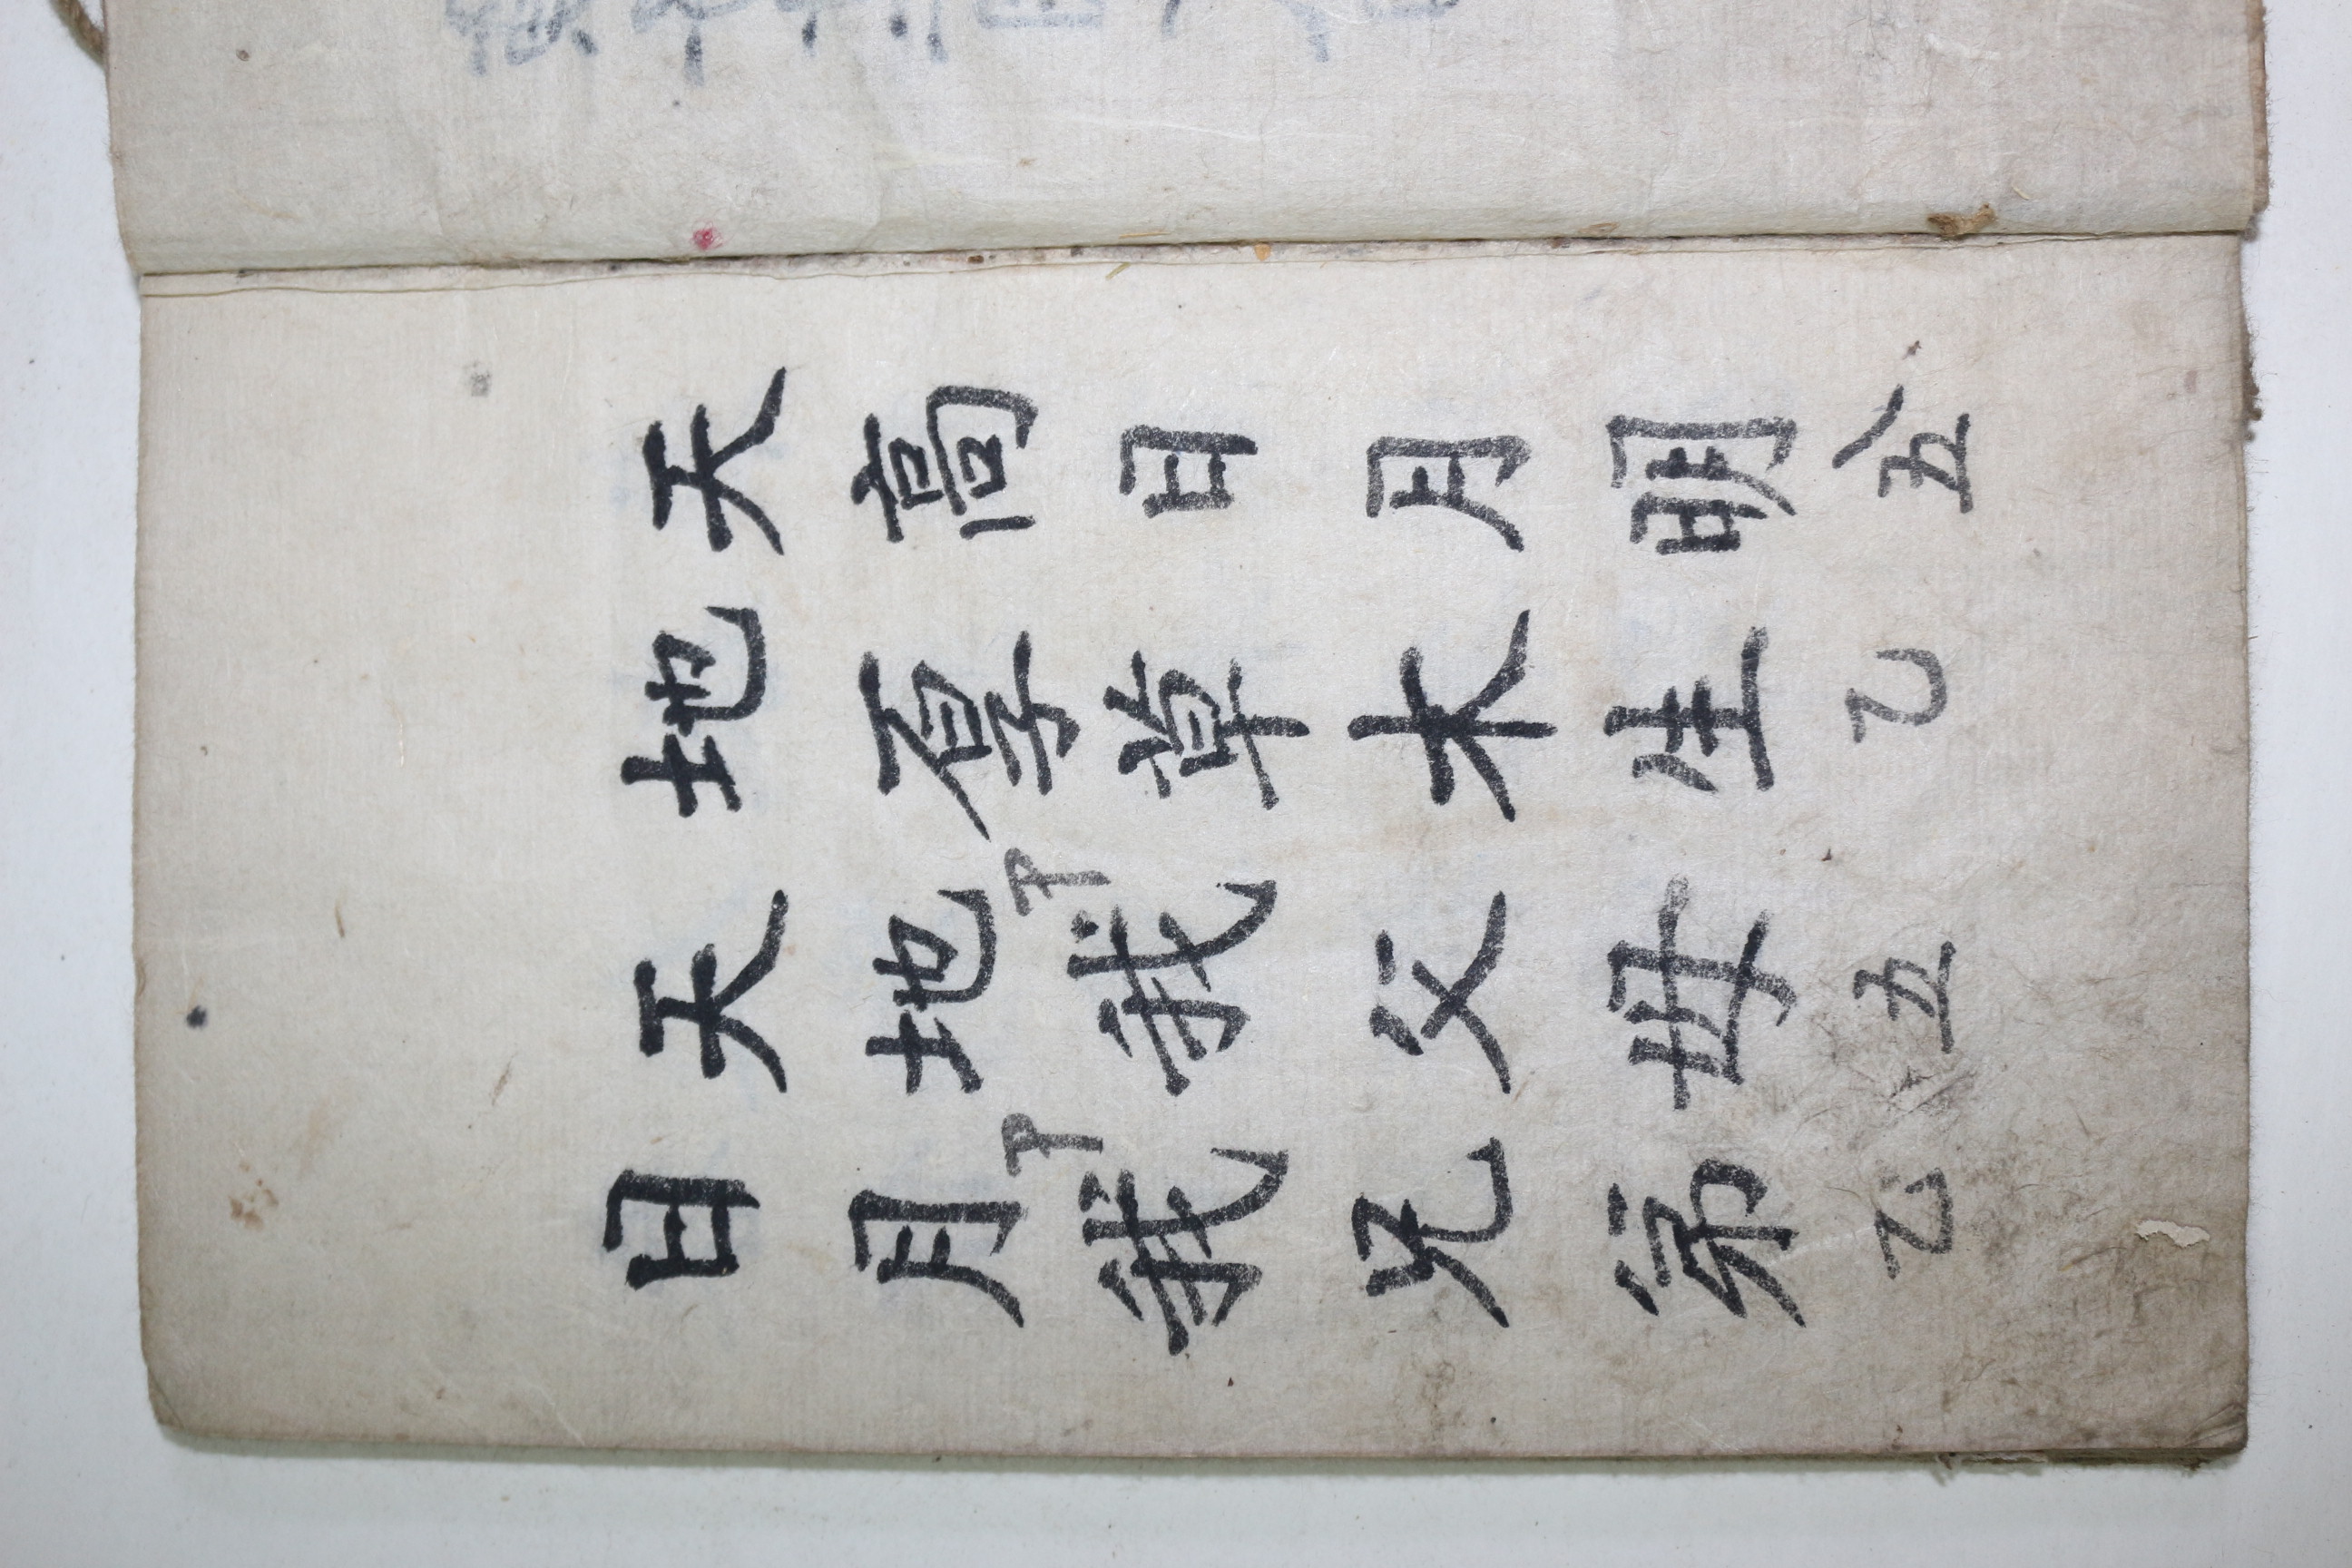 天高日月明𠆤五
地厚草木生乙
天地卩我父母五
日月卩我兄弟乙